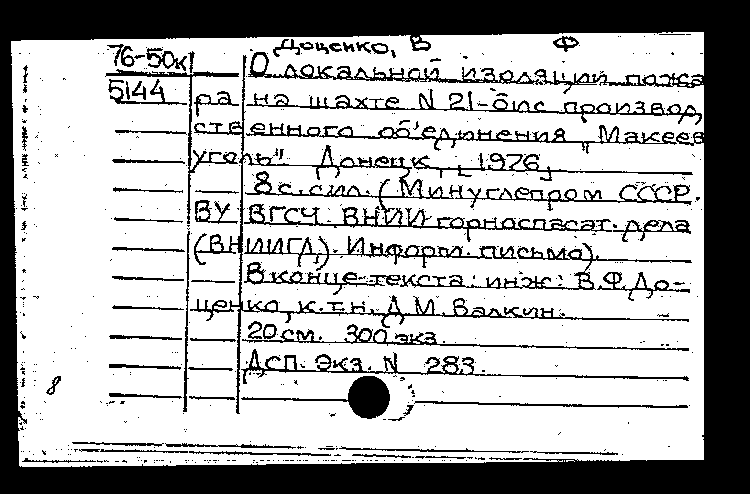 Доценко, В Ф
76-50к О локальной изоляции пожа
5144 ра на шахте N 21-бис производ
ственного об'единения „Макеев
уголь". Донецк, [1976]
8 с. с ил. (Минуглепром СССР.
ВУ ВГСЧ. ВНИИ горноспасат. дела
(ВНИИГД). Информ. письмо).
В конце текста: инж: В.Ф. До-
ценко, к.т.н. Д.М. Валкин.
20 см. 300 экз.
Дсп. Экз. N 283.
8